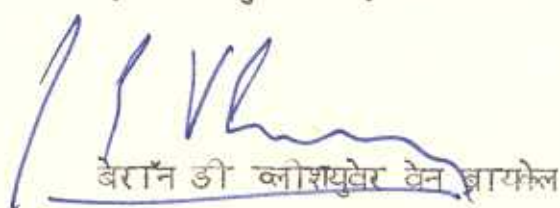 बेरॉन डी व्लीशयुवेर वेन ब्रायकेल